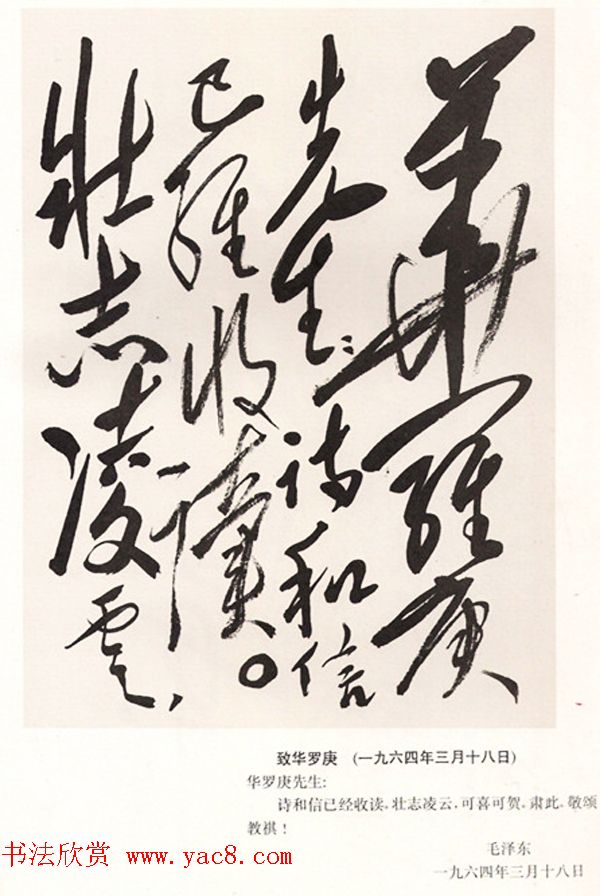 華羅庚
先生：诗和信
已經收讀。
壯志凌雲，
致华罗庚 (一九六四年三月十八日)
华罗庚先生:
诗和信已经收读。壮志凌云,可喜可贺。肃此,敬颂
教祺！
毛泽东
一九六四年三月十八日
书法欣赏 www.yac8.com